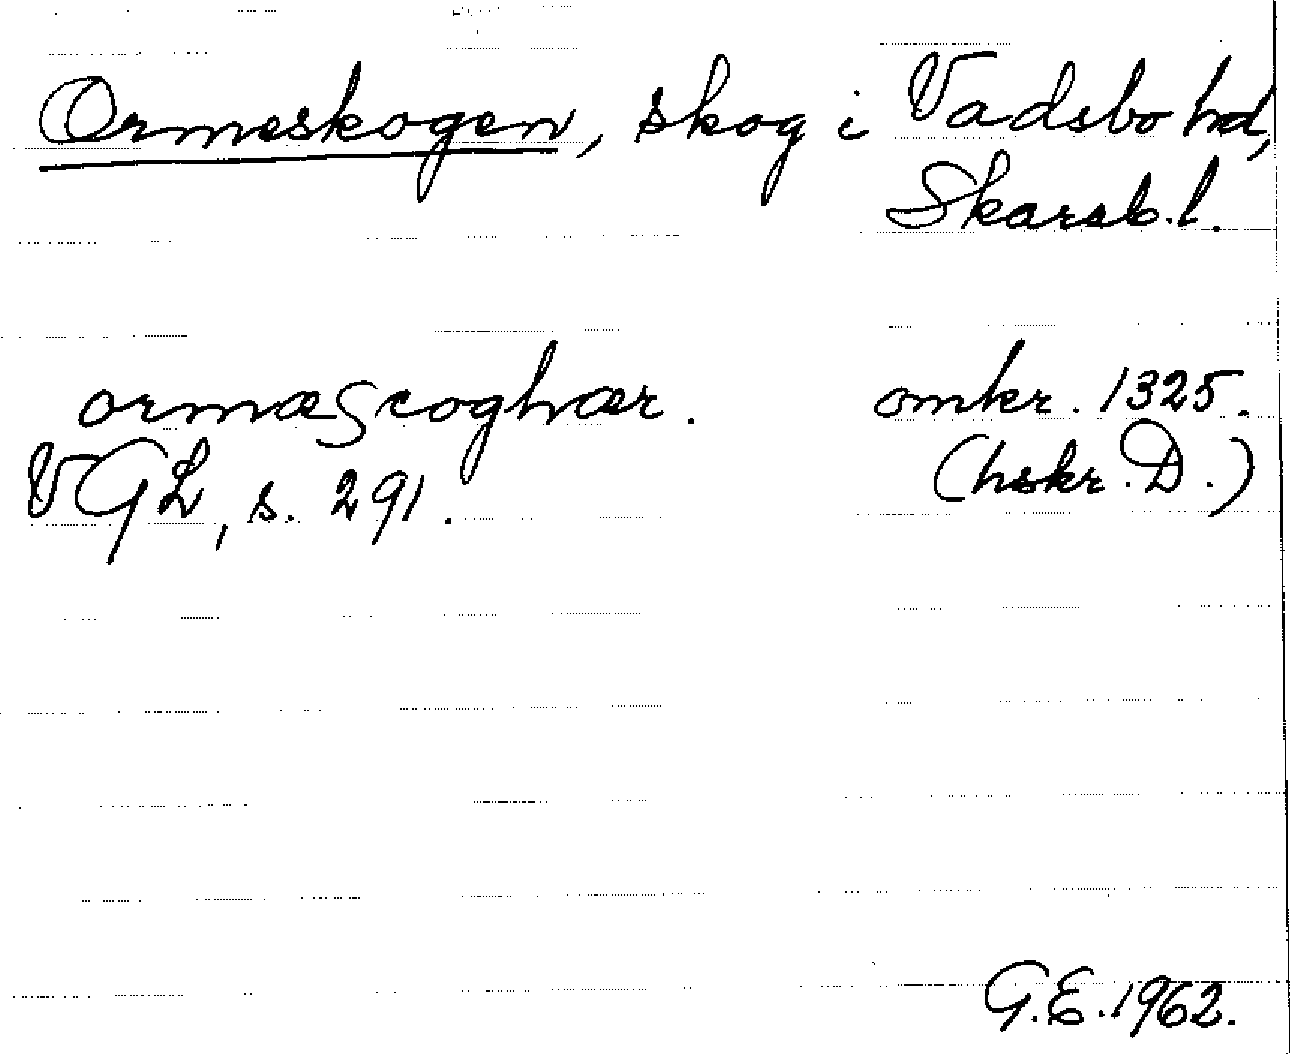 Ormeskogen, skog i Vadsbo hd,
Skarab.l.
ormæscoghær. omkr. 1325.
VGL, s. 291. (hskr. D.)
G.E. 1962.